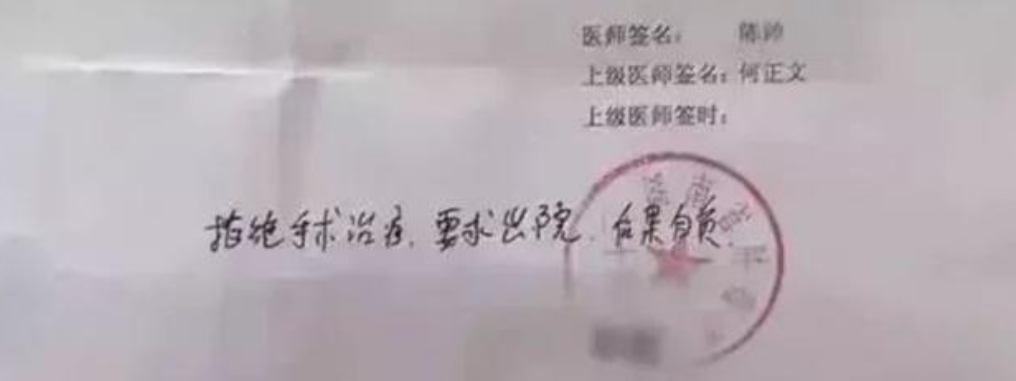 医师签名： 陈帅
上级医师签名：何正文
上级医师签时：
拒绝手术治疗，要求出院，后果自负。